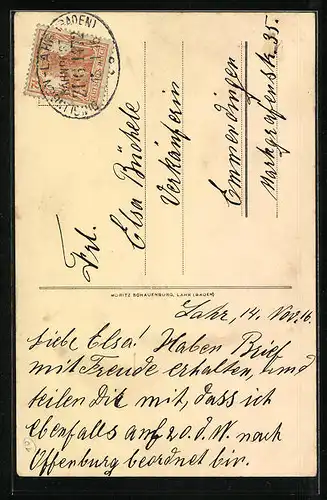 LAHR (BADEN)
Frl.
Elsa Büchele
Verkäuferin
Emmendingen
Markgrafenstr. 35.
MORITZ SCHAUENBURG, LAHR (BADEN)
Lahr, 14. Nov. 16.
Liebe Elsa! Haben Brief
mit Freude erhalten, und
teilen Dir mit, dass ich
ebenfalls auf 20. d. M. nach
Offenburg beordnet bin.